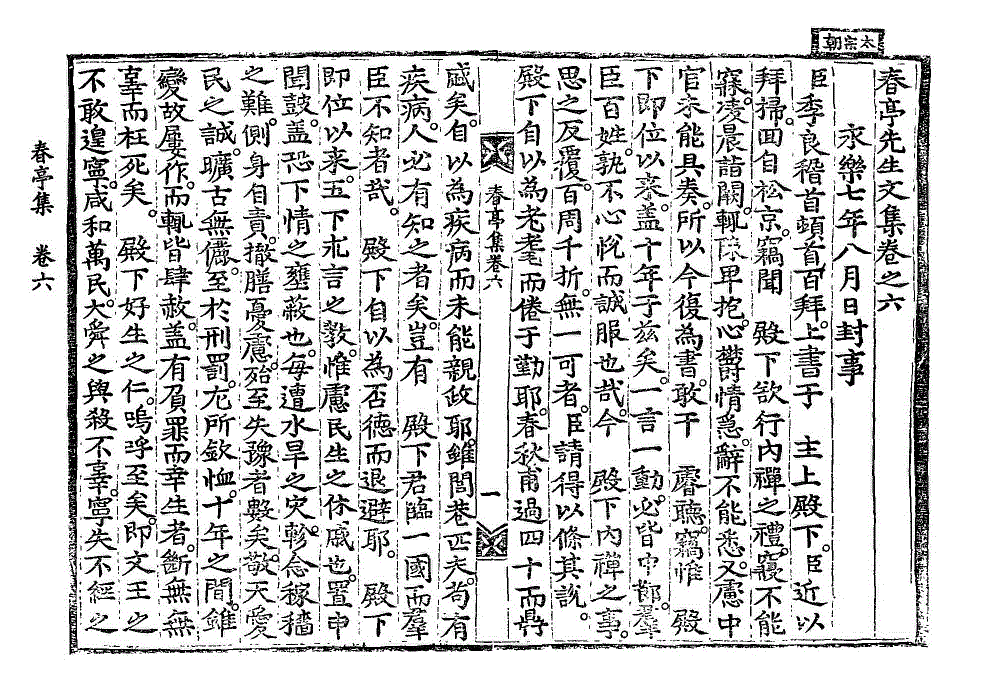 太宗朝
春亭先生文集卷之六
永樂七年八月日封事
臣李良稽首頓首百拜上書于　主上殿下臣近以
拜掃回自松京竊聞　殿下欲行內禪之禮寢不能
寐凌晨詣闕輒陳卑抱心鬱情隱辭不能悉又慮中
官未能具奏所以今復為書敢干　睿聽竊惟　殿
下即位以來蓋十年于玆矣一言一動必皆中節羣
臣百姓孰不心悅而誠服也哉今　殿下內禪之事
思之反覆百周千折無一可者臣請得以條其說
殿下自以為老耄而倦于勤耶春秋甫過四十而鼎
春亭集卷六
一
盛矣自以為疾病而未能親政耶雖閭巷匹夫苟有
疾病人必有知之者矣豈有　殿下君臨一國而羣
臣不知者哉　殿下自以為否德而退避耶　殿下
即位以來五下求言之敎惟慮民生之休戚也置申
聞鼓蓋恐下情之壅蔽也每遭水旱之灾軫念稼穡
之難側身自責撤膳憂慮殆至失豫者數矣敬天愛
民之誠曠古無儷至於刑罰尤所欽恤十年之間雖
變故屢作而輒皆肆赦蓋有負罪而幸生者斷無無
辜而枉死矣　殿下好生之仁嗚呼至矣即文王之
不敢遑寧咸和萬民大舜之與殺不辜寧失不經之
春亭集　卷六